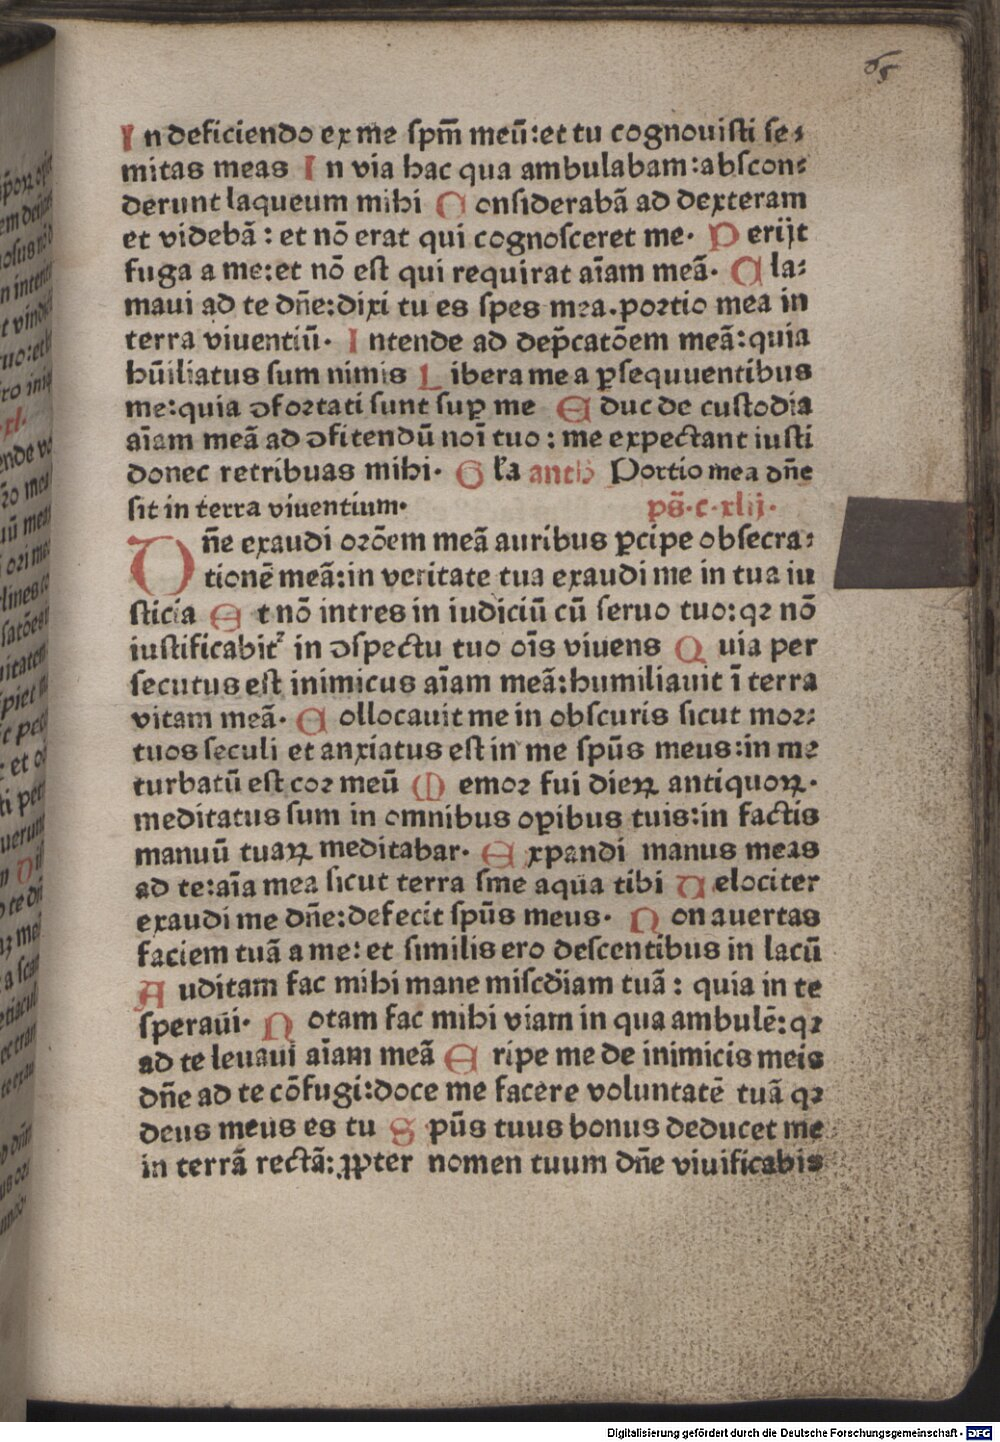 65
In deficiendo ex me spm̄ meū:et tu cognouisti se⸗
mitas meas In via hac qua ambulabam:abscon⸗
derunt laqueum mihi Considerabā ad dexteram
et videbā: et nō erat qui cognosceret me. Perijt
fuga a me:et nō est qui requirat aīam meā. Cla⸗
maui ad te dn̄e:dixi tu es spes mea.portio mea in
terra viuentiū. Intende ad dep̄catōem meā:quia
hūiliatus sum nimis Libera me a ꝑsequuentibus
me:quia ↄfortati sunt suꝑ me Educ de custodia
aīam meā ad ↄfitendū noī tuo: me expectant iusti
donec retribuas mihi. Gl̓a anth̄ Portio mea dn̄e
sit in terra viuentium. ps̄.c.xlij.
Dn̄e exaudi orōem meā auribus ꝑcipe obsecra⸗
tionē meā:in veritate tua exaudi me in tua iu
sticia Et nō intres in iudiciū cū seruo tuo:qꝛ nō
iustificabit᷑ in ↄspectu tuo oīs viuens Quia per
secutus est inimicus aīam meā:humiliauit ī terra
vitam meā. Collocauit me in obscuris sicut mor⸗
tuos seculi et anxiatus est in me sp̄us meus:in me
turbatū est cor meū Memor fui dieꝝ antiquoꝝ.
meditatus sum in omnibus oꝑibus tuis:in factis
manuū tuaꝝ meditabar. Expandi manus meas
ad te:aīa mea sicut terra sine aqua tibi Uelociter
exaudi me dn̄e:defecit sp̄us meus. Non auertas
faciem tuā a me: et similis ero descentibus in lacū
Auditam fac mihi mane misc̄diam tuā: quia in te
speraui. Notam fac mihi viam in qua ambulē:qꝛ
ad te leuaui aīam meā Eripe me de inimicis meis
dn̄e ad te cōfugi:doce me facere voluntatē tuā qꝛ
deus meus es tu Sp̄us tuus bonus deducet me
in terrā rectā:ꝓpter nomen tuum dn̄e viuificabis
Digitalisierung gefördert durch die Deutsche Forschungsgemeinschaft - DFG